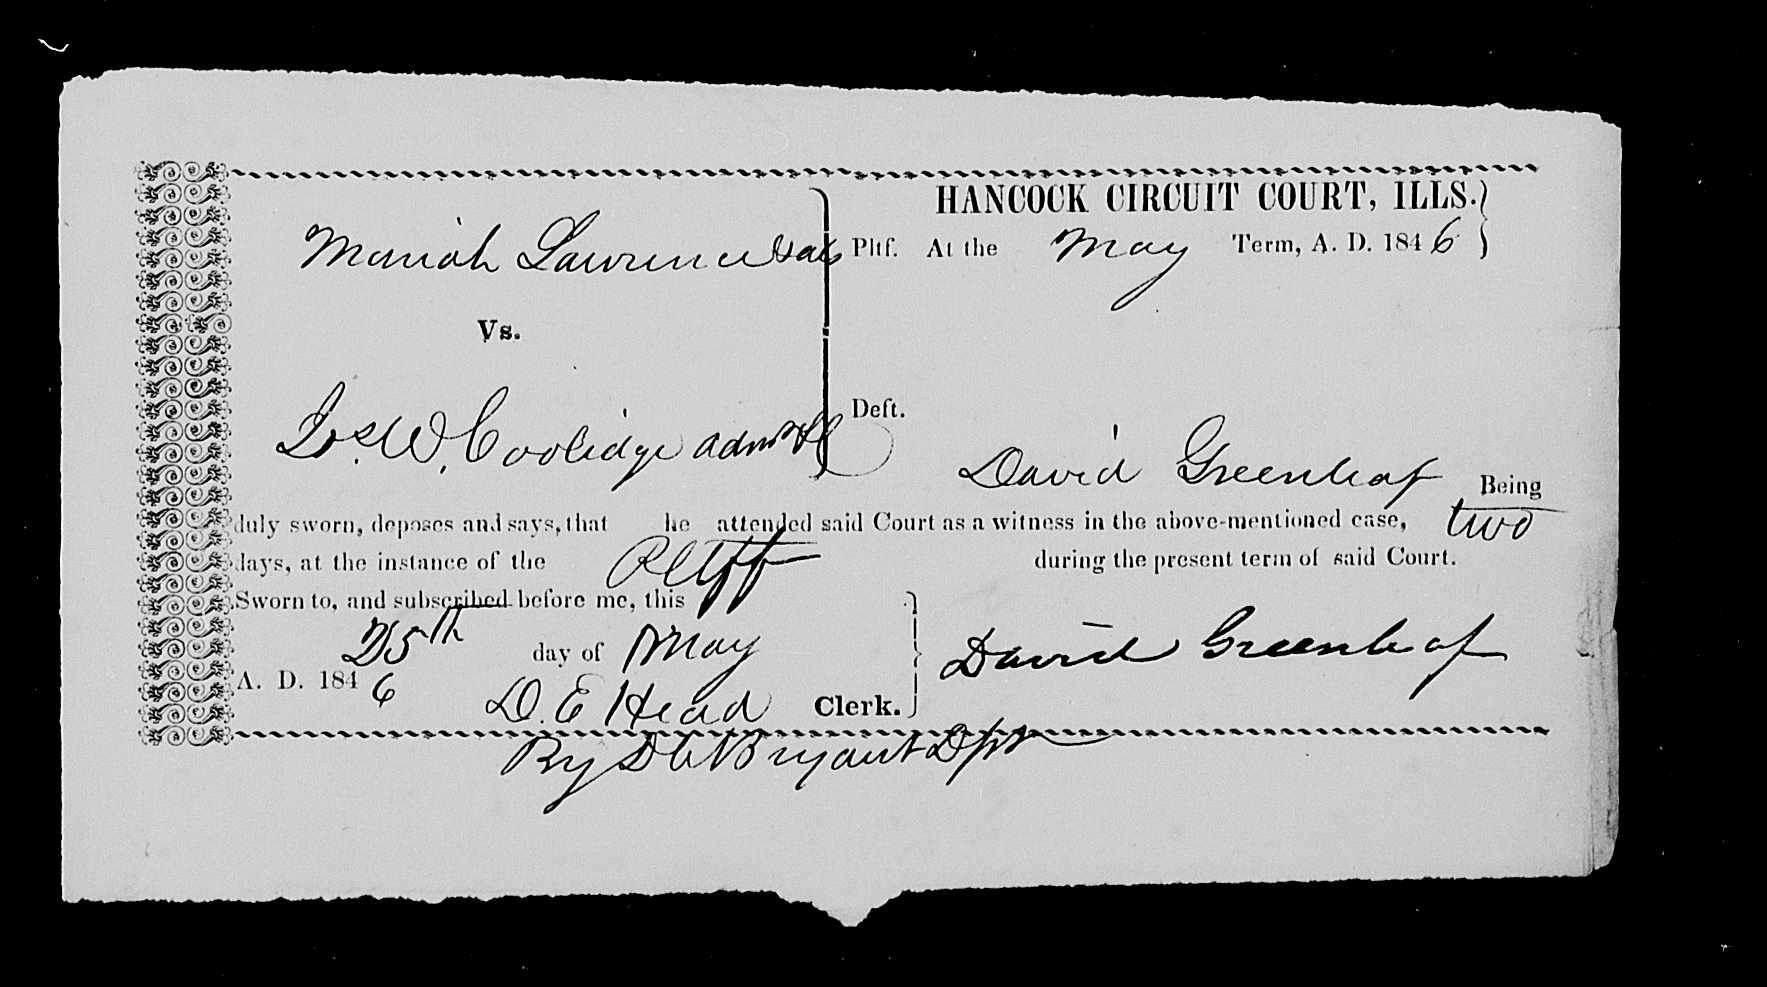 HANCOCK CIRCUIT COURT, ILLS.
Mariah Lawrence Pltf. At the May Term, A. D. 1846
Vs.
Jos. W. Coolidge adm Deft.
David Greenleaf Being
duly sworn, deposes and says, that he attended said Court as a witness in the above-mentioned case, two
days, at the instance of the Pltff during the present term of said Court.
Sworn to, and subscribed before me, this
25th day of May
A. D. 1846
David Greenleaf
D. E Head Clerk.
By Bryant Dpt